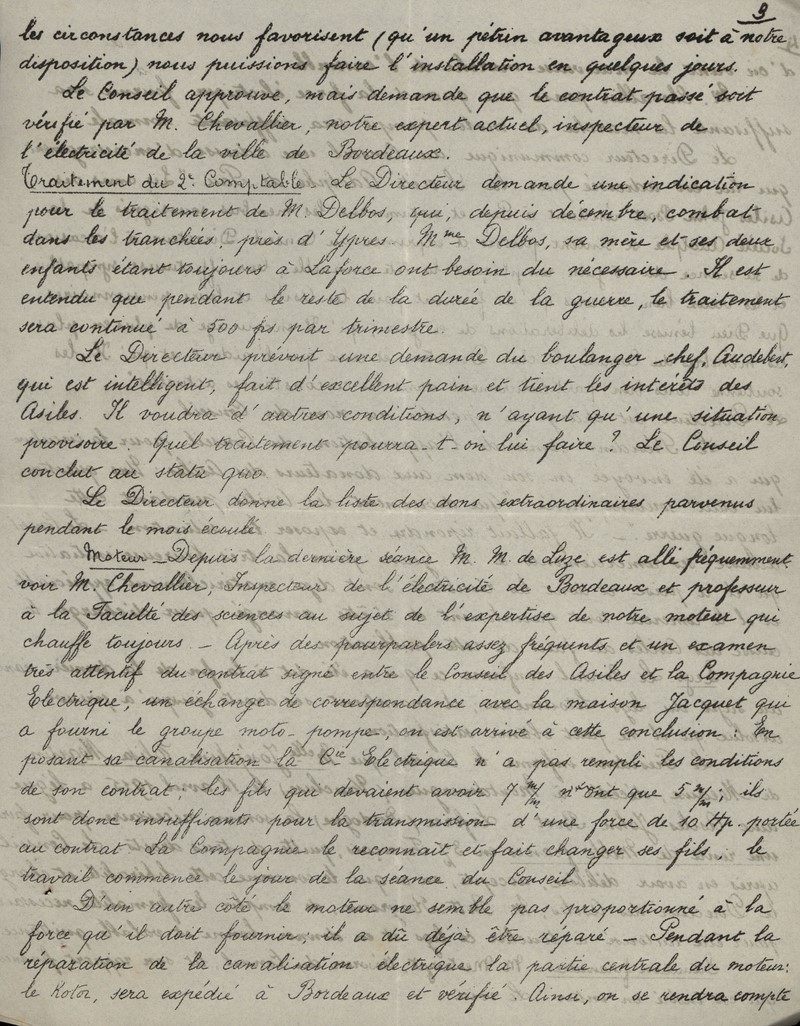 9
les circonstances nous favorisent (qu'un pétrin avantageux soit à notre
disposition) nous puissions faire l'installation en quelques jours.
Le Conseil approuve, mais demande que le contrat passé soit
vérifié par M. Chevallier, notre expert actuel, inspecteur de
l'électricité de la ville de Bordeaux.
Traitement du 2e Comptable. Le Directeur demande une indication
pour le traitement de M. Delbos, qui, depuis décembre, combat
dans les tranchées, près d'Ypres. Mme Delbos, sa mère et ses deux
enfants étant toujours à Laforce ont besoin du nécessaire. Il est
entendu que pendant le reste de la durée de la guerre, le traitement
sera continué à 500 fs par trimestre.
Le Directeur prévoit une demande du boulanger-chef, Audebert,
qui est intelligent, fait d'excellent pain et tient les intérêts des
Asiles. Il voudra d'autres conditions, n'ayant qu'une situation
provisoire. Quel traitement pourra-t-on lui faire? Le Conseil
conclut au statu quo
Le Directeur donne la liste des dons extraordinaires parvenus
pendant le mois écoulé
Moteur - Depuis la dernière séance M. M. de Luze est allé fréquemment
voir M. Chevallier, Inspecteur de l'électricité de Bordeaux et professeur
à la Faculté des sciences au sujet de l'expertise de notre moteur qui
chauffe toujours - Après des pourparlers assez fréquents et un examen
très attentif du contrat signé entre le Conseil des Asiles et la Compagnie
Electrique, un échange de correspondance avec la maison Jacquet qui
a fourni le groupe moto-pompe, on est arrivé à cette conclusion: En
posant sa canalisation la Cie Electrique n'a pas rempli les conditions
de son contrat; les fils qui devaient avoir 7 m/m n'ont que 5 m/m; ils
sont donc insuffisants pour la transmission d'une force de 10 Hp. portée
au contrat. La Compagnie le reconnait et fait changer ses fils; le
travail commence le jour de la séance du Conseil
D'un autre côté le moteur ne semble pas proportionné à la
force qu'il doit fournir; il a dû déjà être réparé - Pendant la
réparation de la canalisation électrique la partie centrale du moteur:
le Rotor, sera expédié à Bordeaux et vérifié. Ainsi, on se rendra compte